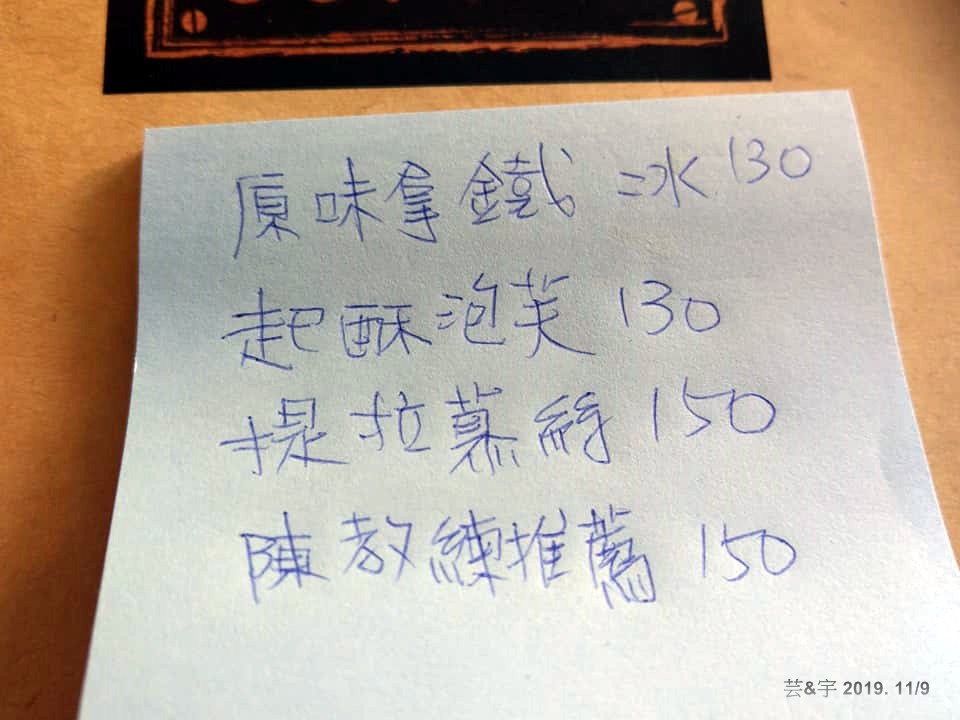 原味拿鐵 冰 130
起酥泡芙 130
提拉慕絲 150
陳教練推薦 150
芸&宇 2019. 11/9